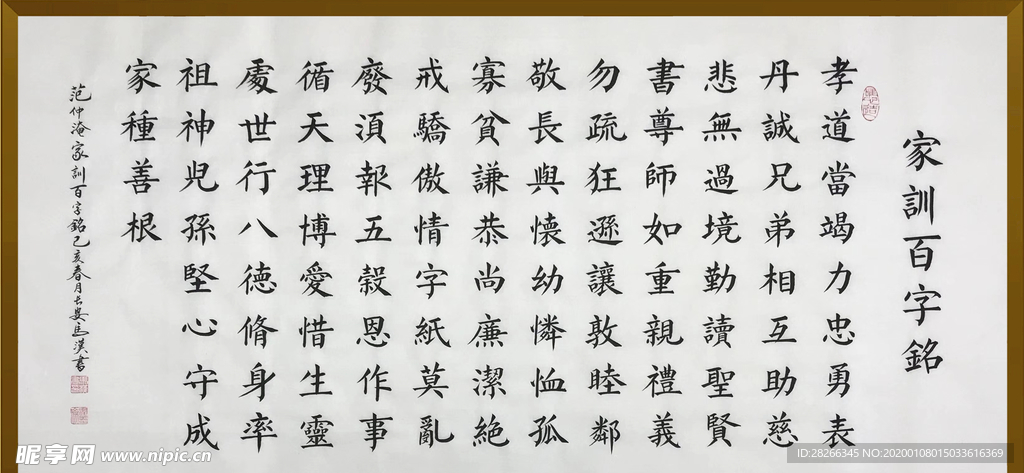 家訓百字銘
孝道當竭力忠勇表
丹誠兄弟相互助慈
悲無過境勤讀聖賢
書尊師如重親禮義
勿疏狂遜讓敦睦鄰
敬長與懷幼憐恤孤
寡貧謙恭尚廉潔絕
戒驕傲情字紙莫亂
廢須報五穀恩作事
循天理博愛惜生靈
處世行八德脩身率
祖神兒孫堅心守成
家種善根
范仲淹家訓百字銘己亥春月長安馬漢書
昵享网 www.nipic.cn
ID:28266345 NO:20200108015033616369